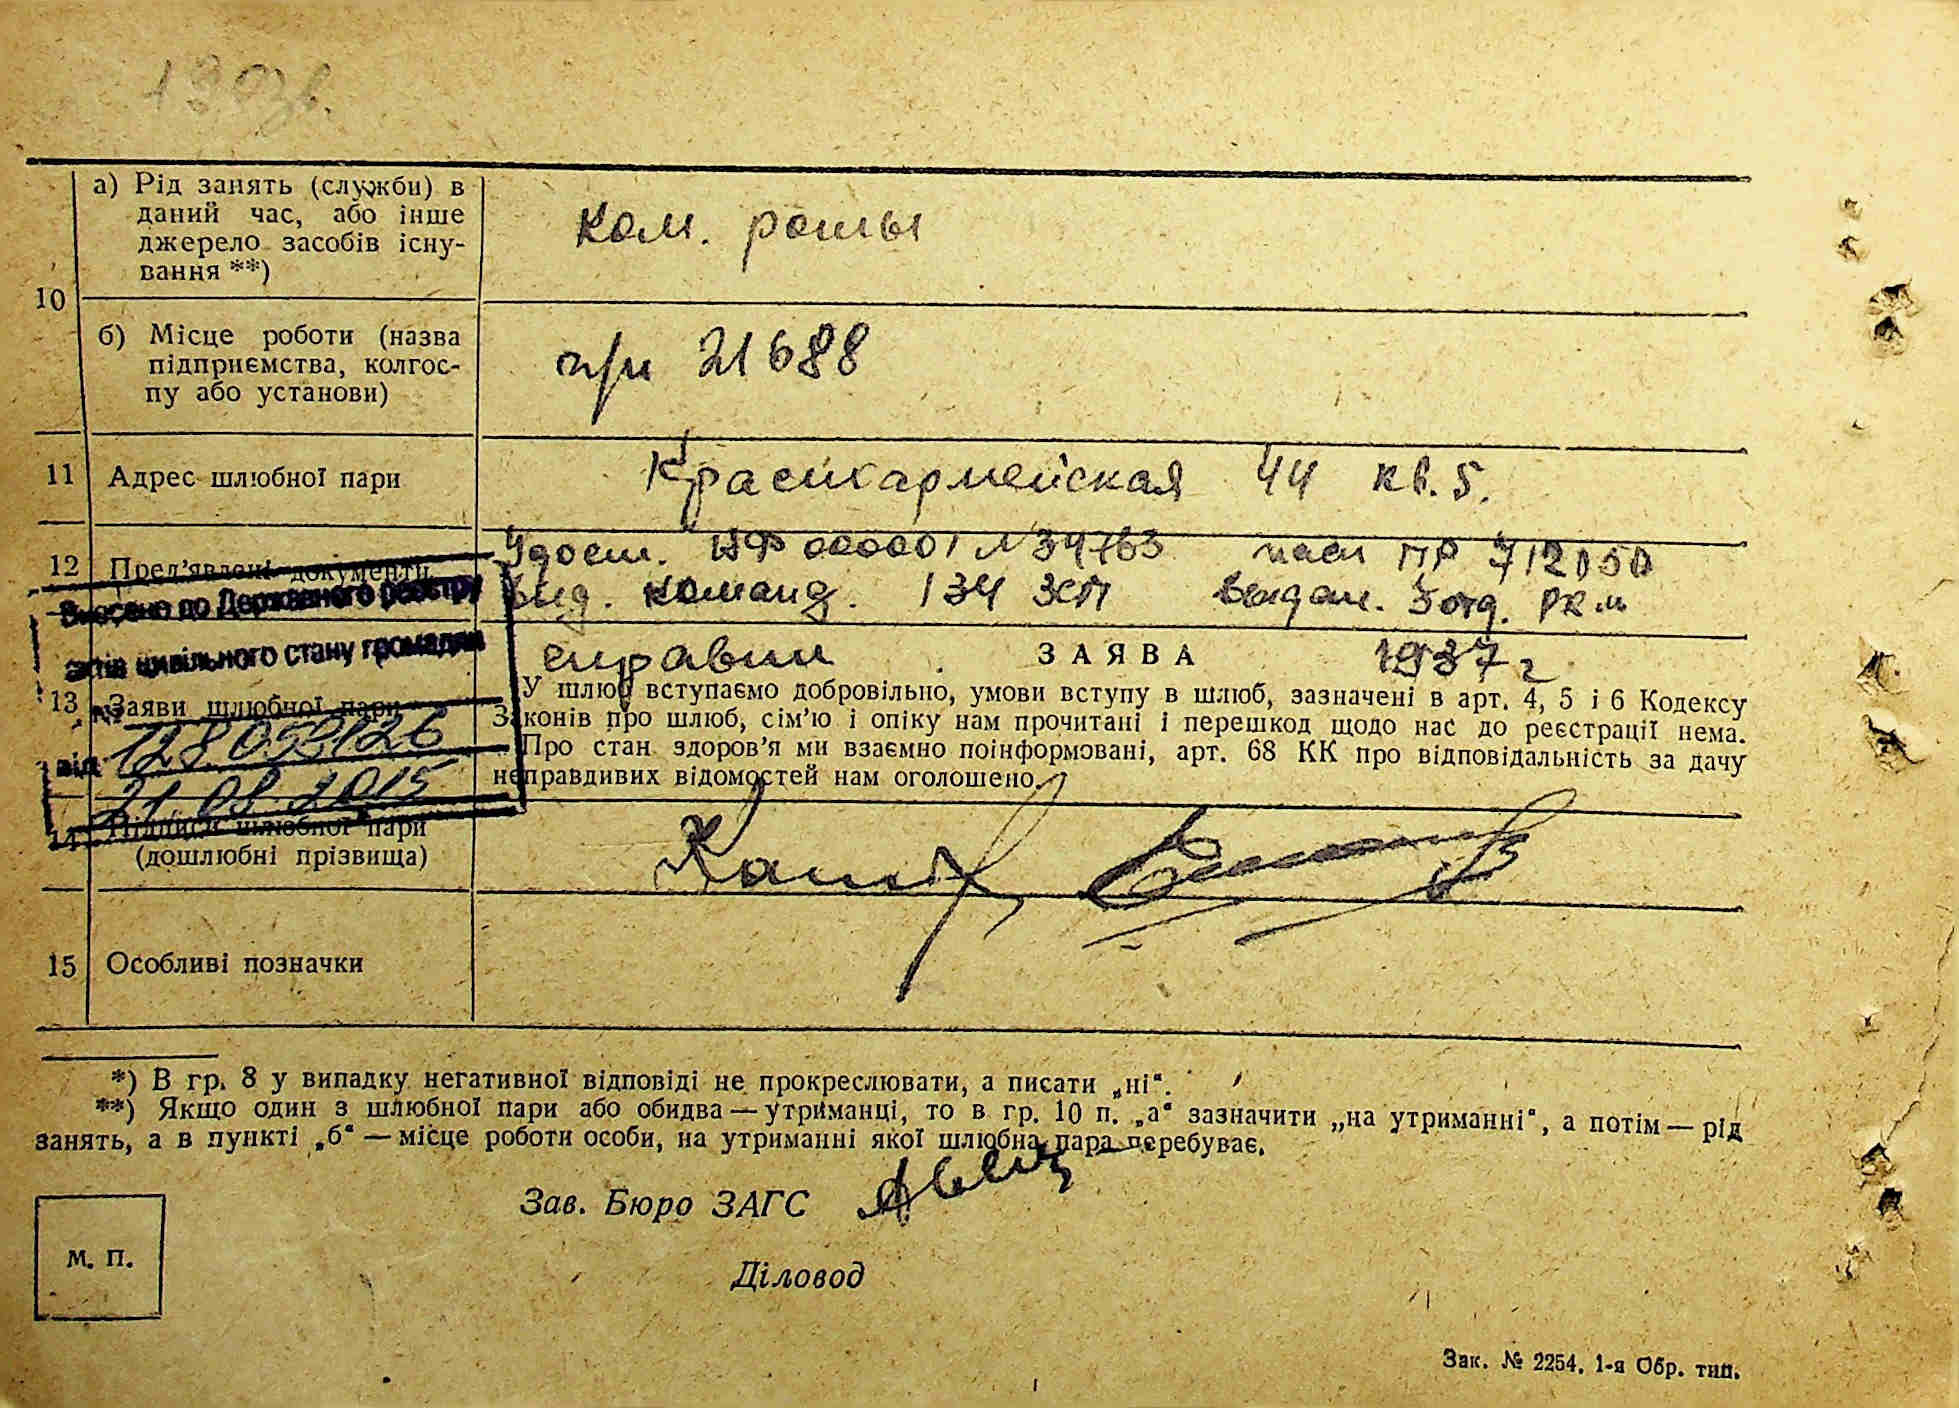 130зв.
а) Рід занять (служби) в
даний час, або інше
джерело засобів існу-
вання **)
ком. роты
10
б) Місце роботи (назва
підприємства, колгос-
пу або установи)
п/п 21688
11 Адрес шлюбної пари
Красноармейская 44 кв. 5.
12 Пред’явлені документи
Удост. 000001 № 34763 пасп ПР 712050
Выд. команд. 134 ЗСП выдан. 5 отд. РКМ
1937 г
Внесено до Державного реєстру
актів цивільного стану громадян
від 21.08.2015
13 Заяви шлюбної пари
ЗАЯВА
У шлюб вступаємо добровільно, умови вступу в шлюб, зазначені в арт. 4, 5 і 6 Кодексу
Законів про шлюб, сім’ю і опіку нам прочитані і перешкод щодо нас до реєстрації нема.
Про стан здоров’я ми взаємно поінформовані, арт. 68 КК про відповідальність за дачу
неправдивих відомостей нам оголошено.
14 Підписи шлюбної пари
(дошлюбні прізвища)
15 Особливі позначки
*) В гр. 8 у випадку негативної відповіді не прокреслювати, а писати „ні“.
**) Якщо один з шлюбної пари або обидва — утриманці, то в гр. 10 п. „а“ зазначити „на утриманні“, а потім — рід
занять, а в пункті „б“ — місце роботи особи, на утриманні якої шлюбна пара перебуває.
Зав. Бюро ЗАГС
М. П.
Діловод
Зак. № 2254. 1-я Обр. тип.